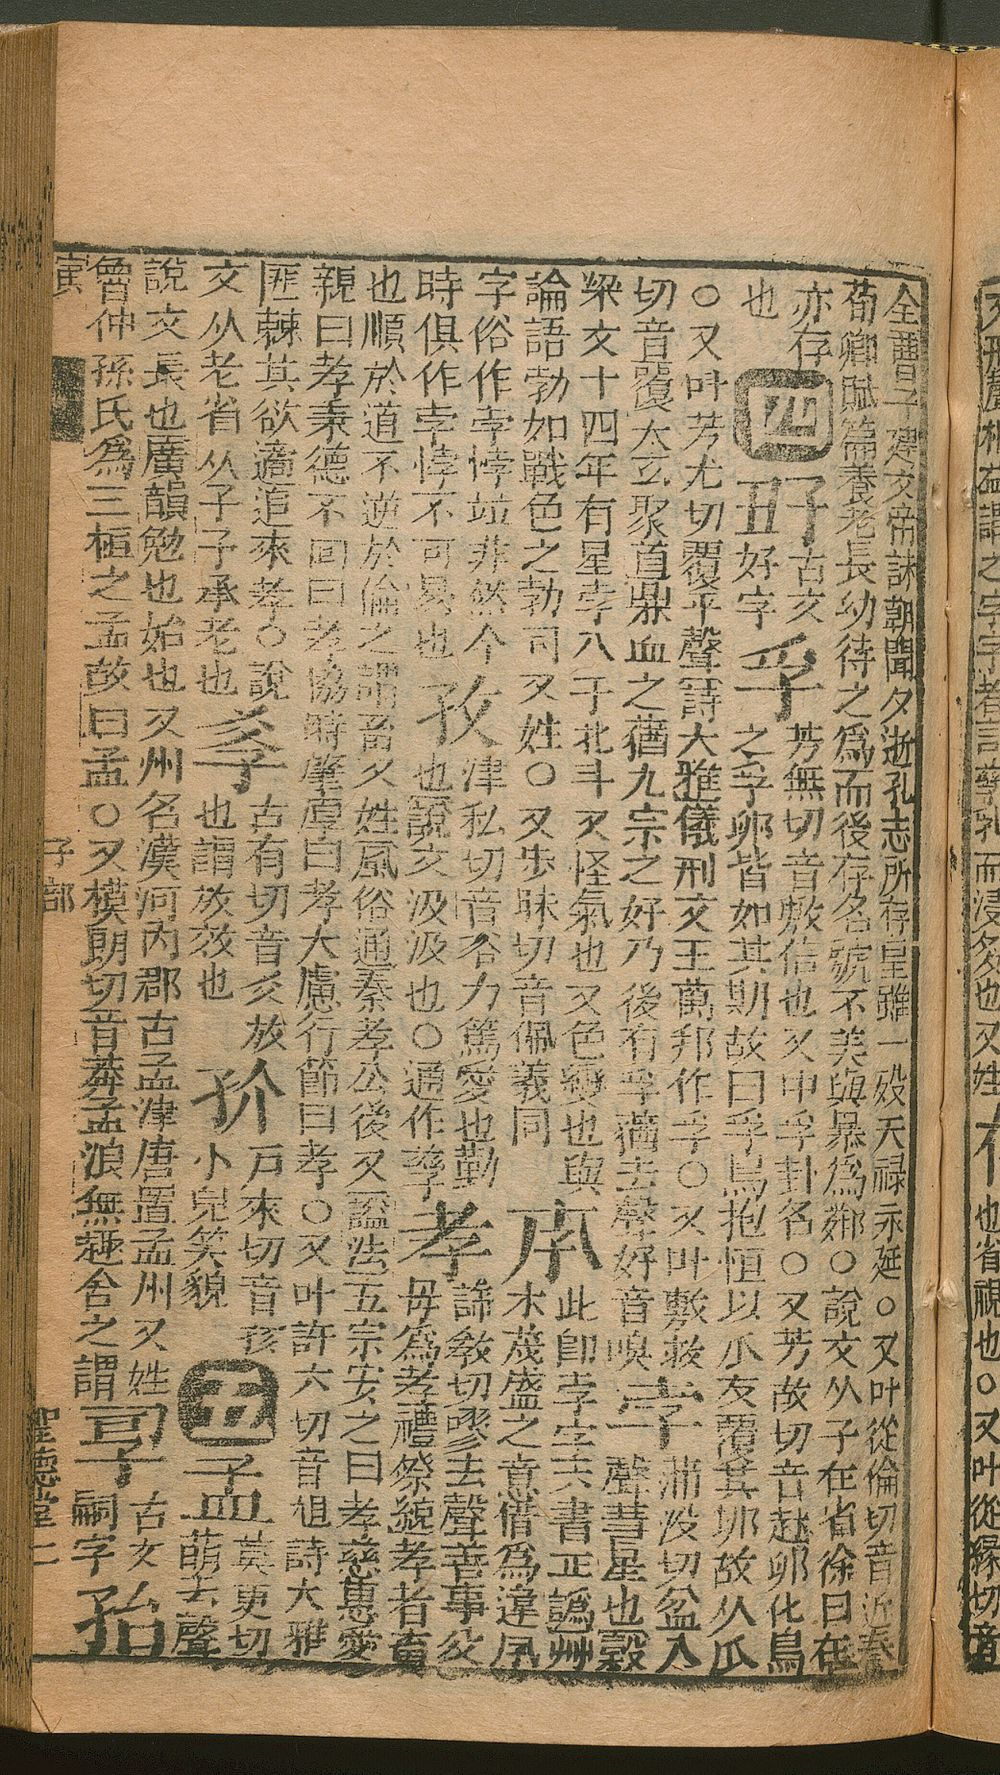 文形聲相益謂之字字者言孳乳而浸多也又姓 也省視也○又叶從緣切音
全曹子建文帝誄朝聞夕逝孔志所存皇雖一歿天祿永延○又叶從倫切音近春
荀卿賦篇養老長幼待之爲而後存名號不美與暴爲鄰○說文从子在省徐曰在
亦存 四 古文 孚 芳無切音敷信也又中孚卦名○又芳故切音赴卵化鳥
也 好字 之孚卵皆如其期故曰孚鳥抱恒以爪友覆其卵故从爪
○又叶芳尤切覆平聲詩大雅儀刑文王萬邦作孚○又叶敷救 孛 蒲沒切盆入
切音覆太玄聚首鼎血之蕕九宗之好乃後有孚蕕去聲好音嗅 聲彗星也穀
梁文十四年有星孛入于北斗又怪氣也又色變也與 此卽孛字六書正譌艸
論語勃如戰色之勃同又姓○又步昧切音佩義同 木茂盛之意借爲違夙
字俗作孛悖竝非然今 孜 津私切音咨力篤愛也勤 孝 許敎切嘐去聲善事父
時俱作孛悖不可易也 也說文汲汲也○通作孳 母爲孝禮祭統孝者畜
也順於道不逆於倫之謂畜又姓風俗通秦孝公後又謚法五宗安之曰孝慈惠愛
親曰孝秉德不回曰孝協時肇厚曰孝大慮行節曰孝○又叶許六切音旭詩大雅
匪棘其欲遹追來孝○說 𡥈 古有切音爻放 戶來切音孩 孟 莫更切
文从老省从子子承老也 也謂放效也 小兒笑貌 五 萌去聲
說文長也廣韻勉也始也又州名漢河內郡古孟津唐置孟州又姓 古文 孡
曾仲孫氏爲三桓之孟故曰孟○又模朗切音莽孟浪無趣舍之謂 嗣字
寅 子部 聖德堂 二